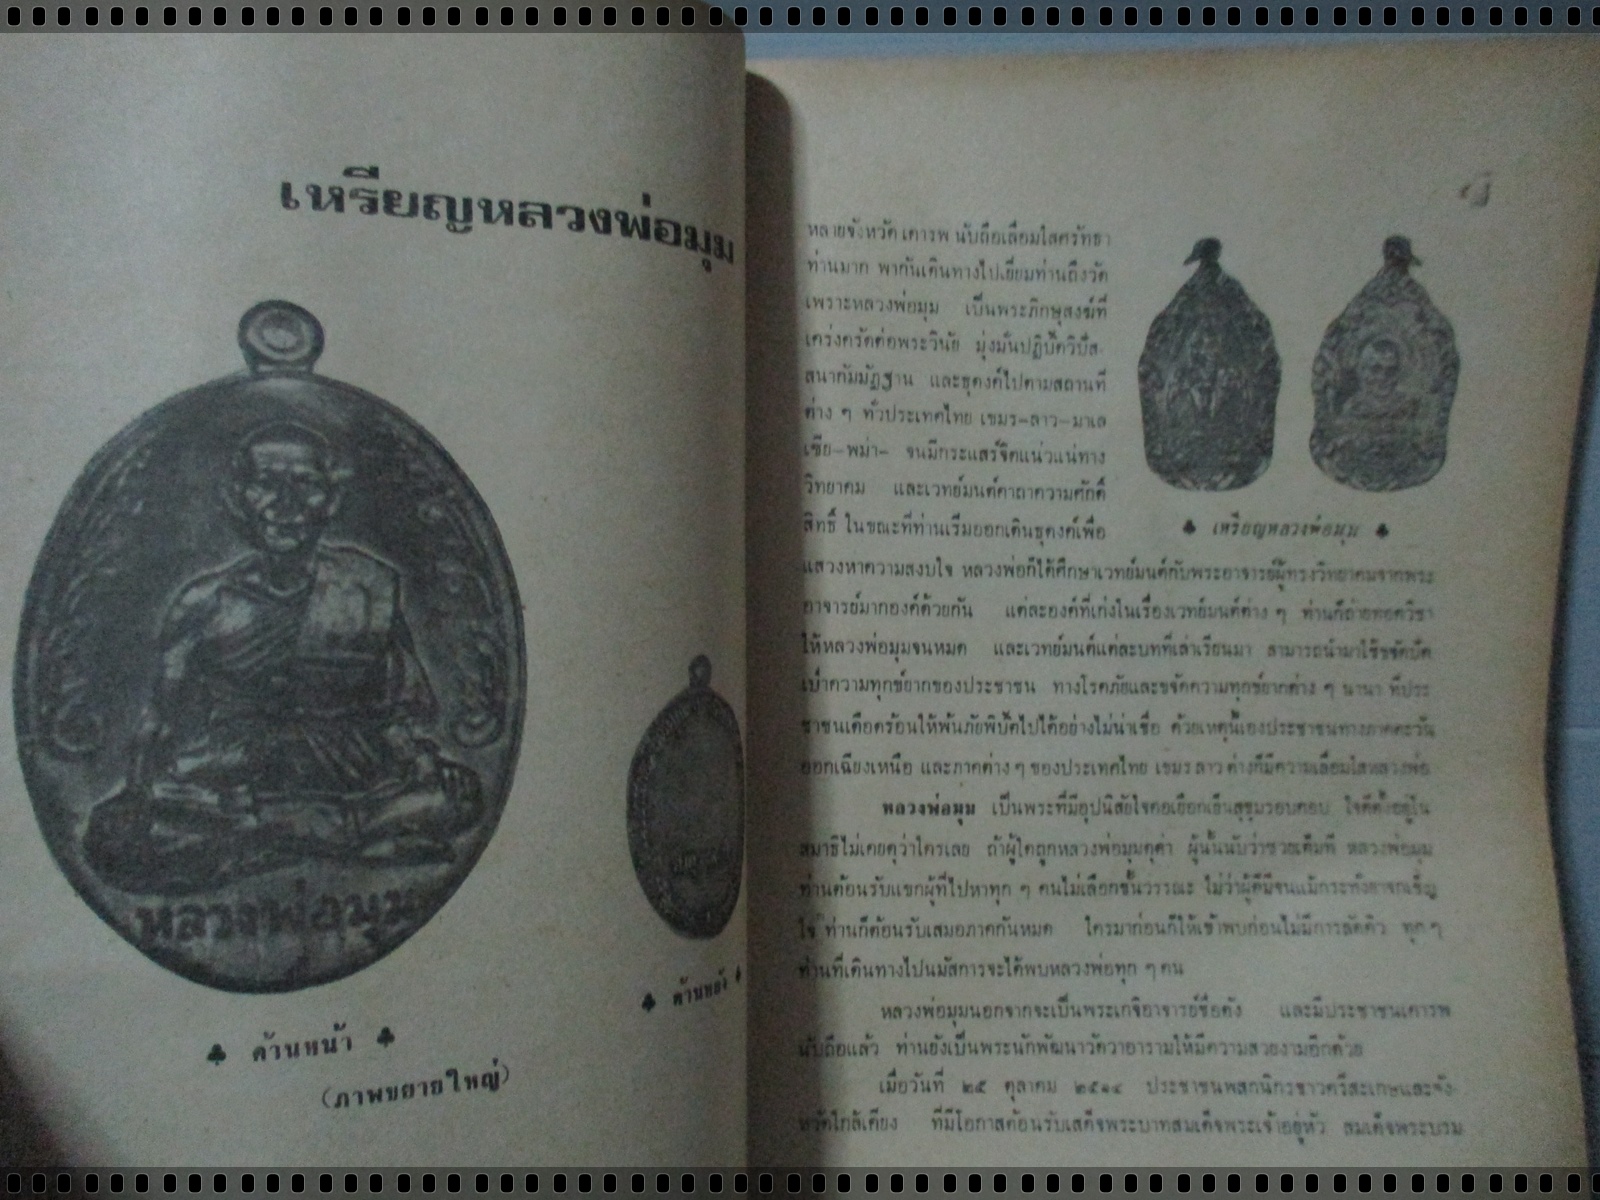 เหรียญหลวงพ่อมุม
หลวงพ่อมุม
♣ ด้านหน้า ♣
(ภาพขยายใหญ่)
♣ ด้านหลัง
หลายจังหวัดเคารพ นับถือเลื่อมใสศรัทธา
ท่านมาก พากันเดินทางไปเยี่ยมท่านถึงวัด
เพราะหลวงพ่อมุม เป็นพระภิกษุสงฆ์ที่
เคร่งครัดต่อพระวินัย มุ่งมั่นปฏิบัติวิปัส-
สนากัมมัฏฐาน และธุดงค์ไปตามสถานที่
ต่าง ๆ ทั่วประเทศไทย เขมร-ลาว-มาเล
เซีย-พม่า- จนมีกระแสร์จิตแน่วแน่ทาง
วิทยาคม และเวทย์มนต์คาถาความศักดิ์
สิทธิ์ ในขณะที่ท่านเริ่มออกเดินธุดงค์เพื่อ
♣ เหรียญหลวงพ่อมุม ♣
แสวงหาความสงบใจ หลวงพ่อก็ได้ศึกษาเวทย์มนต์กับพระอาจารย์ผู้ทรงวิทยาคมจากพระ
อาจารย์มากองค์ด้วยกัน แต่ละองค์ที่เก่งในเรื่องเวทย์มนต์ต่าง ๆ ท่านก็ถ่ายทอดวิชา
ให้หลวงพ่อมุมจนหมด และเวทย์มนต์แต่ละบทที่เล่าเรียนมา สามารถนำมาใช้ขจัดปัด
เป่าความทุกข์ยากของประชาชน ทางโรคภัยและขจัดความทุกข์ยากต่าง ๆ นานา ที่ประ
ชาชนเดือดร้อนให้พ้นภัยพิบัติไปได้อย่างไม่น่าเชื่อ ด้วยเหตุนี้เองประชาชนทางภาคตะวัน
ออกเฉียงเหนือ และภาคต่าง ๆ ของประเทศไทย เขมร ลาว ต่างก็มีความเลื่อมใสหลวงพ่อ
หลวงพ่อมุม เป็นพระที่มีอุปนิสัยใจคอเยือกเย็นสุขุมรอบคอบ ใจดีตั้งอยู่ใน
สมาธิไม่เคยดุว่าใครเลย ถ้าผู้ใดถูกหลวงพ่อมุมดุด่า ผู้นั้นนับว่าซวยเต็มที หลวงพ่อมุม
ท่านต้อนรับแขกผู้ที่ไปหาทุก ๆ คนไม่เลือกชั้นวรรณะ ไม่ว่าผู้ดีมีจนแม้กระทั่งยาจกเข็ญ
ใจ ท่านก็ต้อนรับเสมอภาคกันหมด ใครมาก่อนก็ให้เข้าพบก่อนไม่มีการลัดคิว ทุก ๆ
ท่านที่เดินทางไปนมัสการจะได้พบหลวงพ่อทุก ๆ คน
หลวงพ่อมุมนอกจากจะเป็นพระเกจิอาจารย์ชื่อดัง และมีประชาชนเคารพ
นับถือแล้ว ท่านยังเป็นพระนักพัฒนาวัดวาอารามให้มีความสวยงามอีกด้วย
เมื่อวันที่ ๒๕ ตุลาคม ๒๕๑๔ ประชาชนพสกนิกรชาวศรีสะเกษและจัง-
หวัดใกล้เคียง ที่มีโอกาสต้อนรับเสด็จพระบาทสมเด็จพระเจ้าอยู่หัว สมเด็จพระบรม